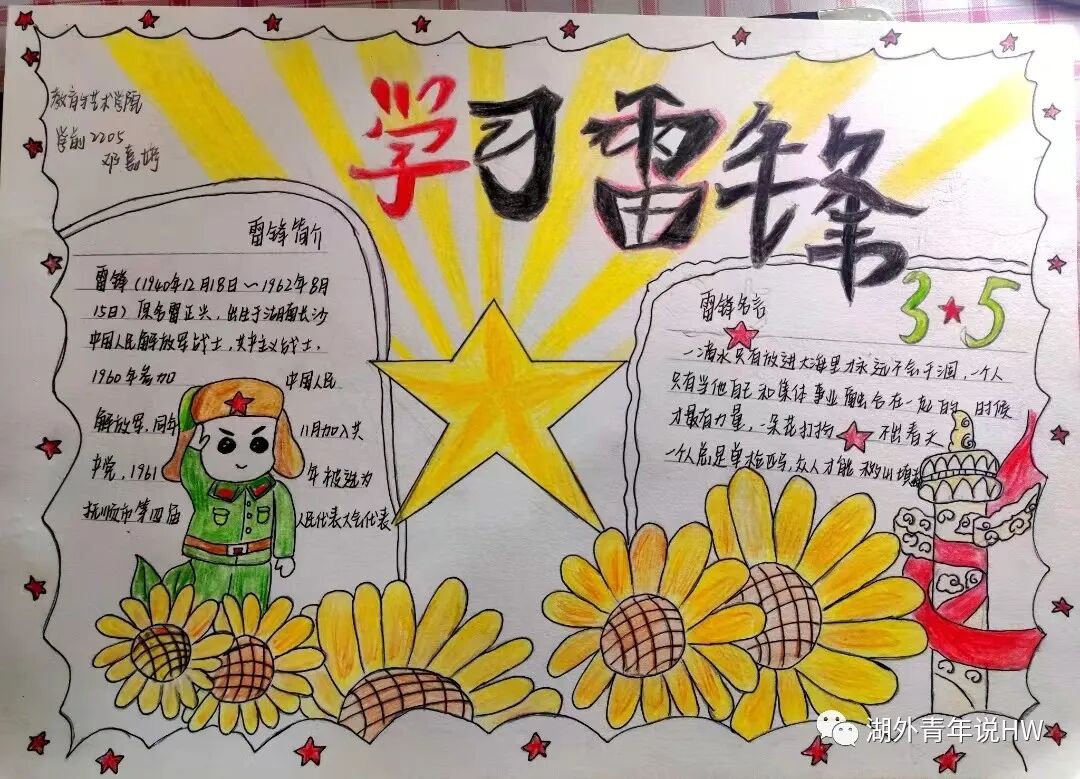 教育与艺术学院
学前2205
邓嘉婷
学习雷锋
3 5
雷锋简介
雷锋(1940年12月18日~1962年8月
15日)原名雷正兴,出生于湖南长沙
中国人民解放军战士,共产主义战士,
1960年参加 中国人民
解放军,同年 11月加入共
产党,1961 年被选为
抚顺市第四届 人民代表大会代表
雷锋名言
一滴水只有放进大海里才永远不会干涸,一个人
只有当他自己和集体事业融合在一起的 时候
才最有力量,一朵花打扮 不出春天
一个人总是单枪匹马,众人才能 移山填海
湖外青年说HW